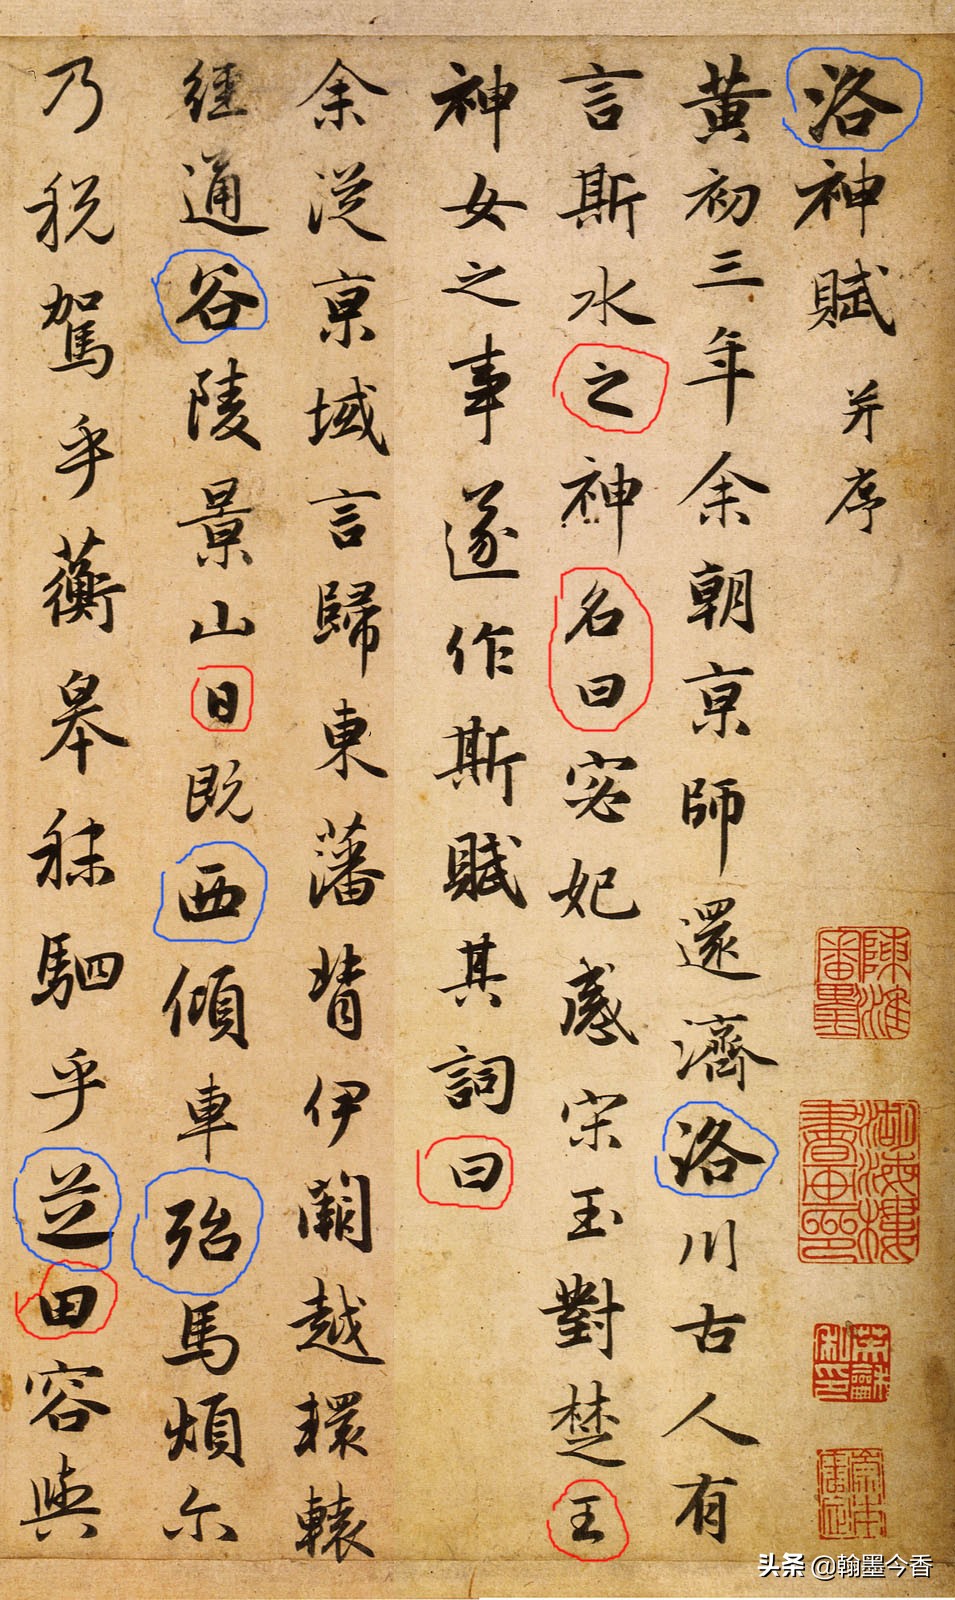 洛神賦 并序
黃初三年余朝京師還濟洛川古人有
言斯水之神名曰宓妃感宋玉對楚王
神女之事遂作斯賦其詞曰
余從京域言歸東藩背伊闕越轘轅
經通谷陵景山日既西傾車殆馬煩尔
乃税駕乎蘅皋秣駟乎芝田容與
头条 @翰墨今香